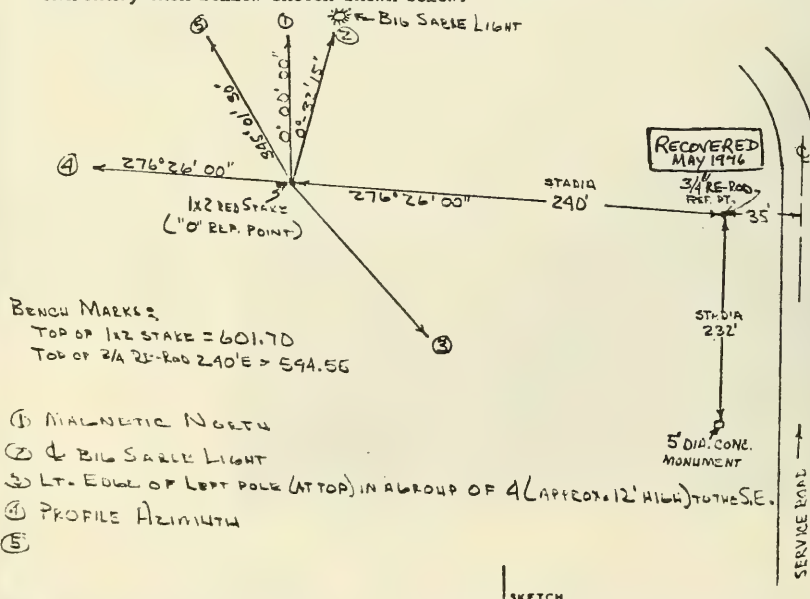 ⑤
①
BIG SABLE LIGHT
②
345° 01' 30"
0° 00' 00"
0°-32' 15"
④
276° 26' 00"
1x2 RED STAKE
("0" REF. POINT)
276° 26' 00"
STADIA
240'
RECOVERED
MAY 1976
3/4" RE-ROD
REF. PT.
35'
STADIA
232'
③
BENCH MARKS:
TOP OF 1x2 STAKE = 601.70
TOP OF 3/4 RE-ROD 240'E = 594.56
5" DIA. CONC.
MONUMENT
① MAGNETIC NORTH
② ℄ BIG SABLE LIGHT
③ LT. EDGE OF LEFT POLE (AT TOP) IN A GROUP OF 4 (APPROX. 12' HIGH) TO THE S.E.
④ PROFILE AZIMUTH
⑤
SERVICE ROAD
℄
SKETCH